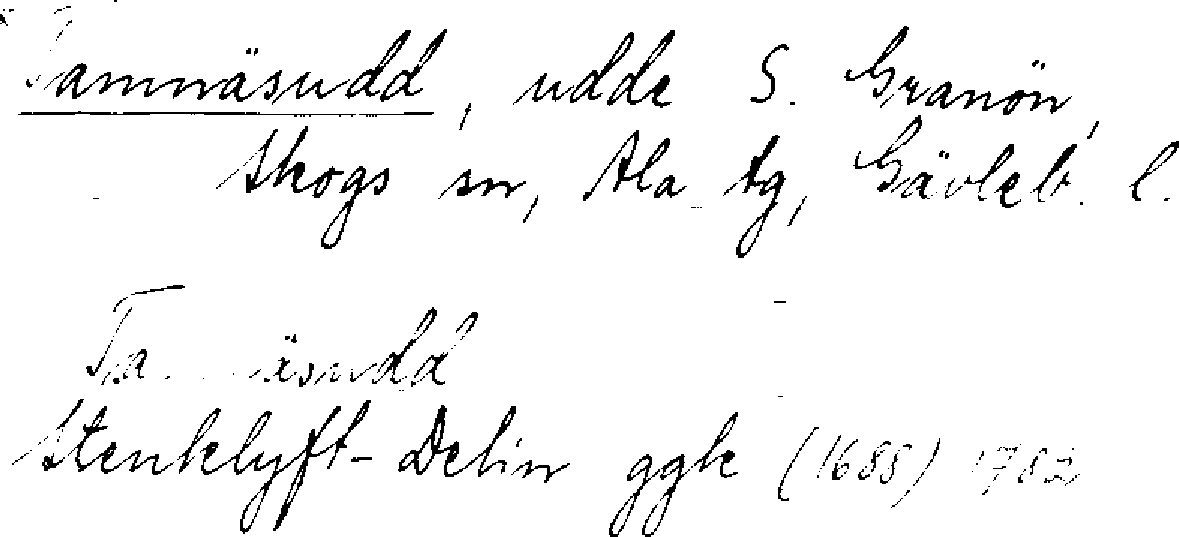 Tamnäsudd, udde S. Granön,
Skogs sn, Ala tg, Gävleb. l.
Ta  äsudd
Stenklyft-Delin ggk (1688) 1782